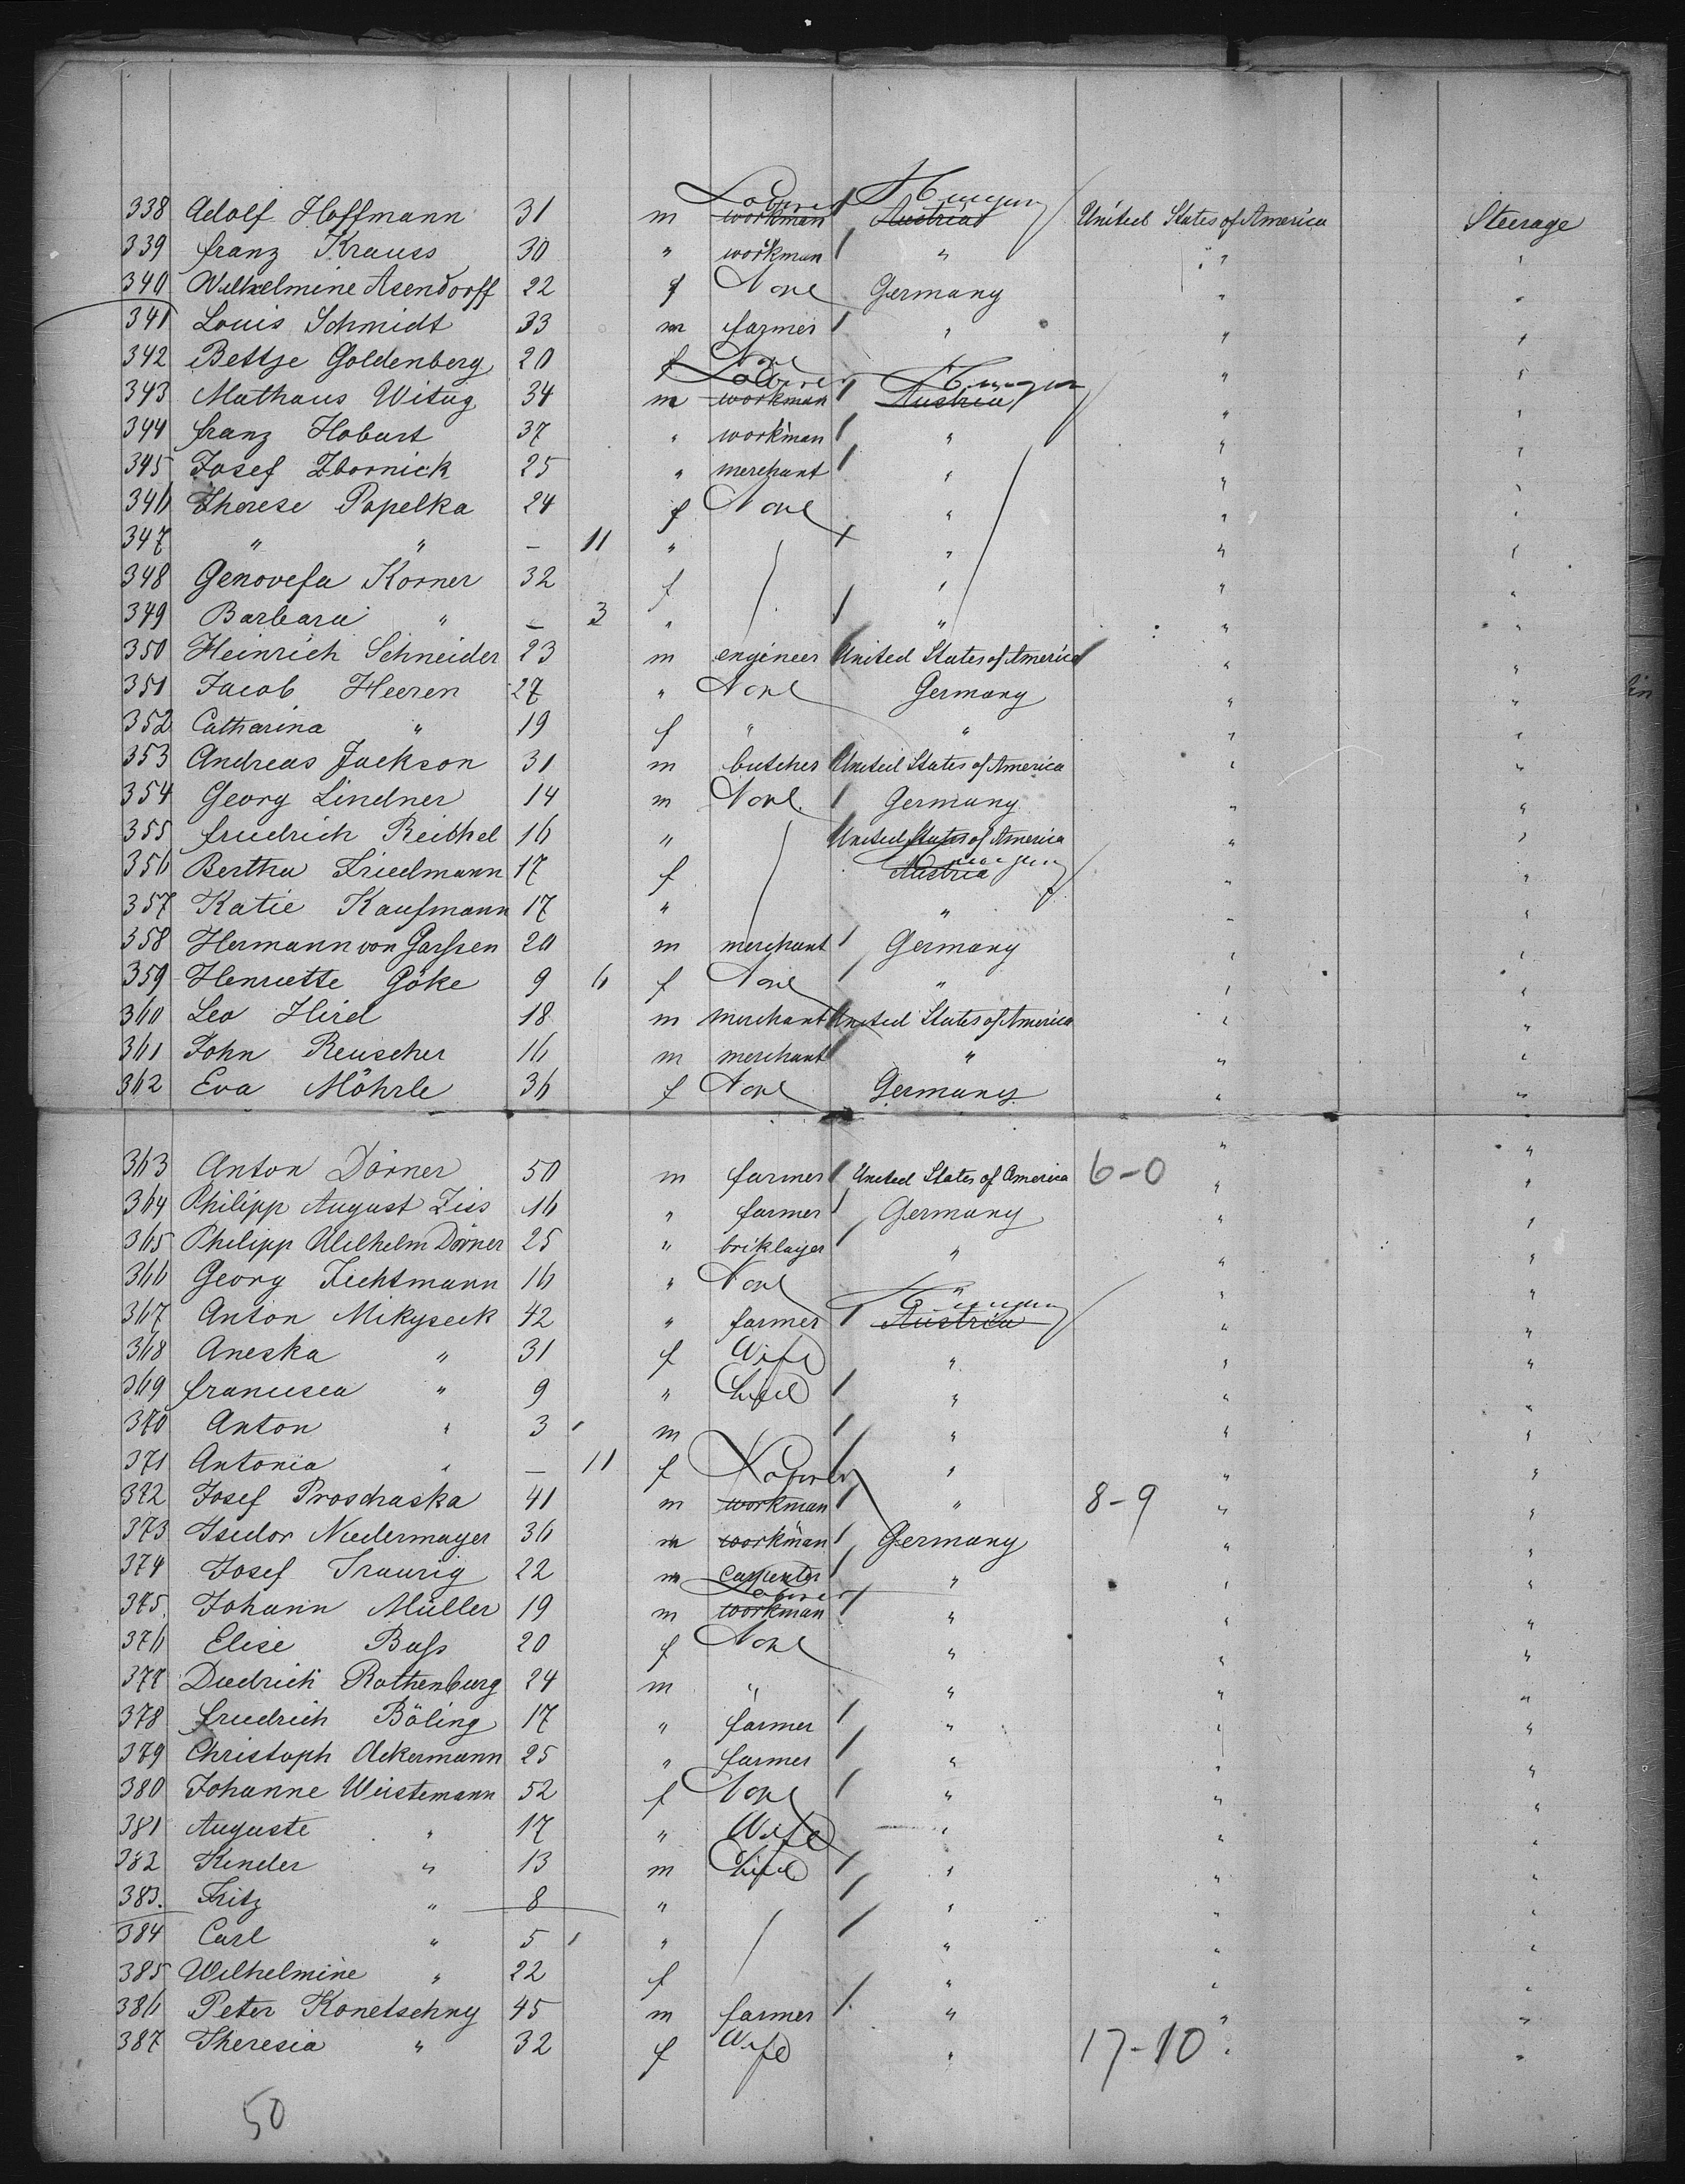 338 Adolf Hoffmann 31 m Laborer workman Hungary Austria United States of America Steerage
339 Franz Krauss 30 " workman " " "
340 Wilhelmine Asendorff 22 f None Germany " "
341 Louis Schmidt 33 m farmer " " "
342 Bettje Goldenberg 20 f None " "
343 Mathaus Witug 34 m Laborer workman Hungary Austria " "
344 Franz Hobart 37 " workman " " "
345 Josef Zbornick 25 " merchant " " "
346 Therese Popelka 24 f None " " "
347 " " — 11 " " " "
348 Genovefa Korner 32 f " " "
349 Barbara " — 3 " " " "
350 Heinrich Schneider 23 m engineer United States of America " "
351 Jacob Heeren 27 " None Germany " "
352 Catharina " 19 f " " " "
353 Andreas Jackson 31 m butcher United States of America " "
354 Georg Lindner 14 m None Germany " "
355 Friedrich Reichel 16 " United States of America " "
356 Bertha Friedmann 17 f Hungary Austria " "
357 Katie Kaufmann 17 " " " "
358 Hermann von Garssen 20 m merchant Germany " "
359 Henriette Göke 9 6 f None " " "
360 Leo Hirel 18 m merchant United States of America " "
361 John Reuscher 16 m merchant " " "
362 Eva Möhrle 36 f None Germany " "
363 Anton Dörner 50 m farmer United States of America 6-0 " "
364 Philipp August Ziss 16 " farmer Germany " "
365 Philipp Wilhelm Dörner 25 " briklayer " " "
366 Georg Fichtmann 16 " None " " "
367 Anton Mikyseck 42 " farmer Hungary Austria " "
368 Aneska " 31 f Wife " " "
369 Francisca " 9 " Child " " "
370 Anton " 3 m " " "
371 Antonia " — 11 f " " "
372 Josef Proschaska 41 m Laborer workman " 8-9 " "
373 Isidor Niedermayer 36 m workman Germany " "
374 Josef Traurig 22 m carpenter " " "
375 Johann Müller 19 m Laborer workman " " "
376 Elise Buss 20 f None " " "
377 Diedrich Rothenburg 24 m " " " "
378 Friedrich Böling 17 " farmer " " "
379 Christoph Ackermann 25 " farmer " " "
380 Johanne Weistemann 52 f None " " "
381 Auguste " 17 " Wife " " "
382 Kinder " 13 m Child " " "
383. Fritz " 8 " " " "
384 Carl " 5 " " " "
385 Wilhelmine " 22 f " " "
386 Peter Konetschny 45 m farmer " " "
387 Theresia " 32 f Wife " 17-10 " "
50